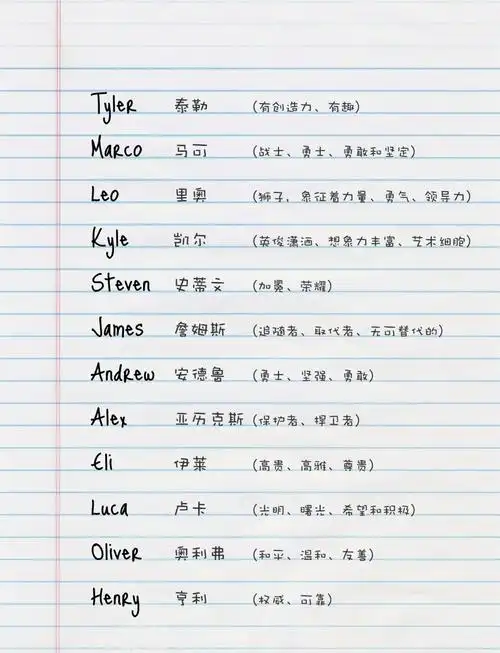 Tyler 泰勒 (有创造力、有趣)
Marco 马可 (战士、勇士、勇敢和坚定)
Leo 里奥 (狮子，象征着力量、勇气、领导力)
Kyle 凯尔 (英俊潇洒、想象力丰富、艺术细胞)
Steven 史蒂文 (加冕、荣耀)
James 詹姆斯 (追随者、取代者、无可替代的)
Andrew 安德鲁 (勇士、坚强、勇敢)
Alex 亚历克斯 (保护者、捍卫者)
Eli 伊莱 (高贵、高雅、尊贵)
Luca 卢卡 (光明、曙光、希望和积极)
Oliver 奥利弗 (和平、温和、友善)
Henry 亨利 (权威、可靠)